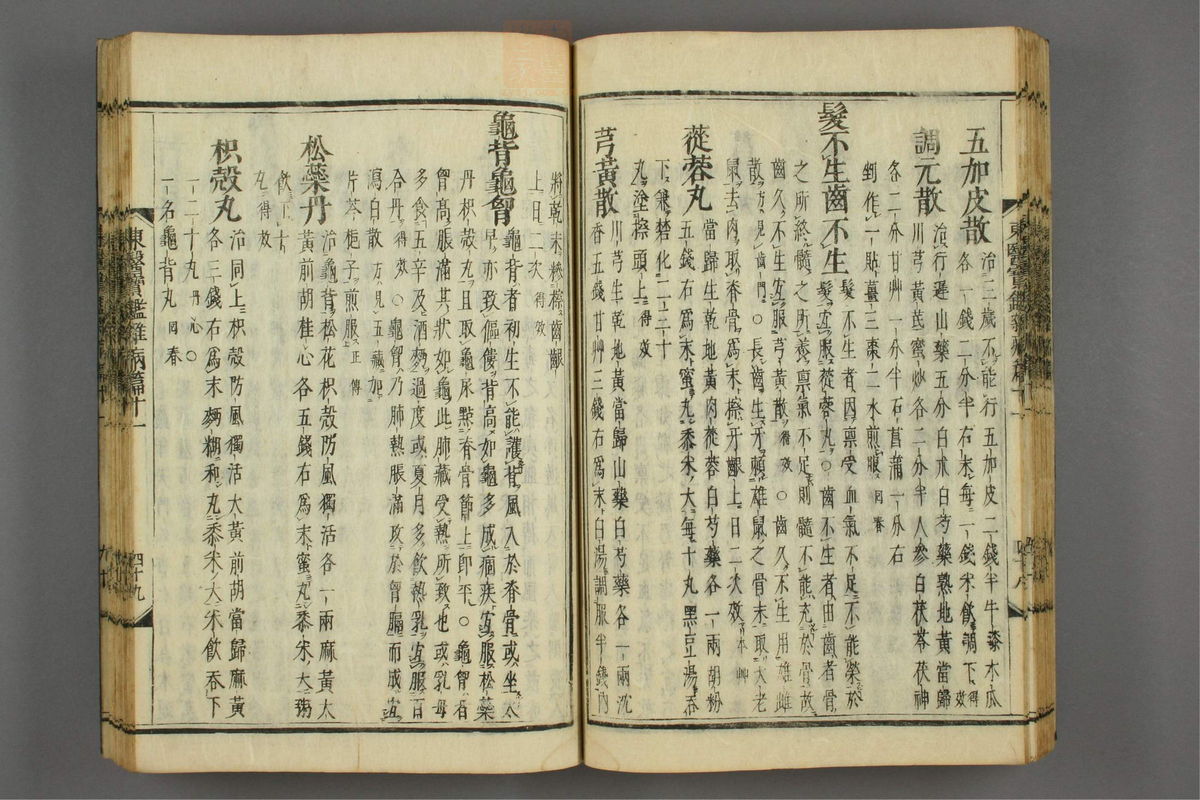 五加皮散 治三歲不能行五加皮二錢半牛膝木瓜
各一錢二分半右末每一錢米飮調下 得效
調元散 治行遲山藥五分白朮白芍藥熟地黃當歸
川芎黃芪蜜炒各二分半人參白茯苓茯神
各二分甘艸一分半石菖蒲一分右
剉作一貼薑三棗二水煎服 回春
髮不生齒不生 髮不生者因稟受血氣不足不能榮於
髮宜服蓯蓉丸○齒不生者由齒者骨
之所終髓之所養稟氣不足則髓不能充於骨故
齒久不生宜服芎黃散 得效 ○齒久不生用雄雌
散 方見齒門 ○長齒生牙賴雄鼠之骨末取大老
鼠去肉取脊骨爲末擦牙齦上日二次效 本艸
蓯蓉丸 當歸生乾地黃肉蓯蓉白芍藥各一兩胡粉
五錢右爲末蜜丸黍米大每十丸黑豆湯呑
下兼磨化二三十
丸塗擦頭上 得效
芎黃散 川芎生乾地黃當歸山藥白芍藥各一兩沈
香五錢甘艸三錢右爲末白湯調服半錢仍
東醫寶鑑雜病篇十一
四十八
將乾末糝擦齒齦
上日二次 得效
龜背龜胷 龜背者初生不能護背風入於脊骨或坐太
早亦致傴僂背高如龜多成痼疾宜服松藥
丹枳殼丸且取龜尿點脊骨節上卽平○龜胷者
胷高脹滿其狀如龜此肺藏受熱所致也或乳母
多食五辛及酒麪過度或夏月多飮熱乳宜服百
合丹 得效 ○龜胷乃肺熱脹滿攻於胷膈而成宜
瀉白散 方見五藏 加
片芩梔子煎服 正傳
松蘂丹 治龜背松花枳殼防風獨活各一兩麻黃大
黃前胡桂心各五錢右爲末蜜丸黍米大粥
飮下十
丸 得效
枳殼丸 治同上枳殼防風獨活大黃前胡當歸麻黃
各三錢右爲末麪糊和丸黍米大米飮呑下
一二十丸 丹心 ○
一名龜背丸 回春
東醫寶鑑雜病篇十一
四十九